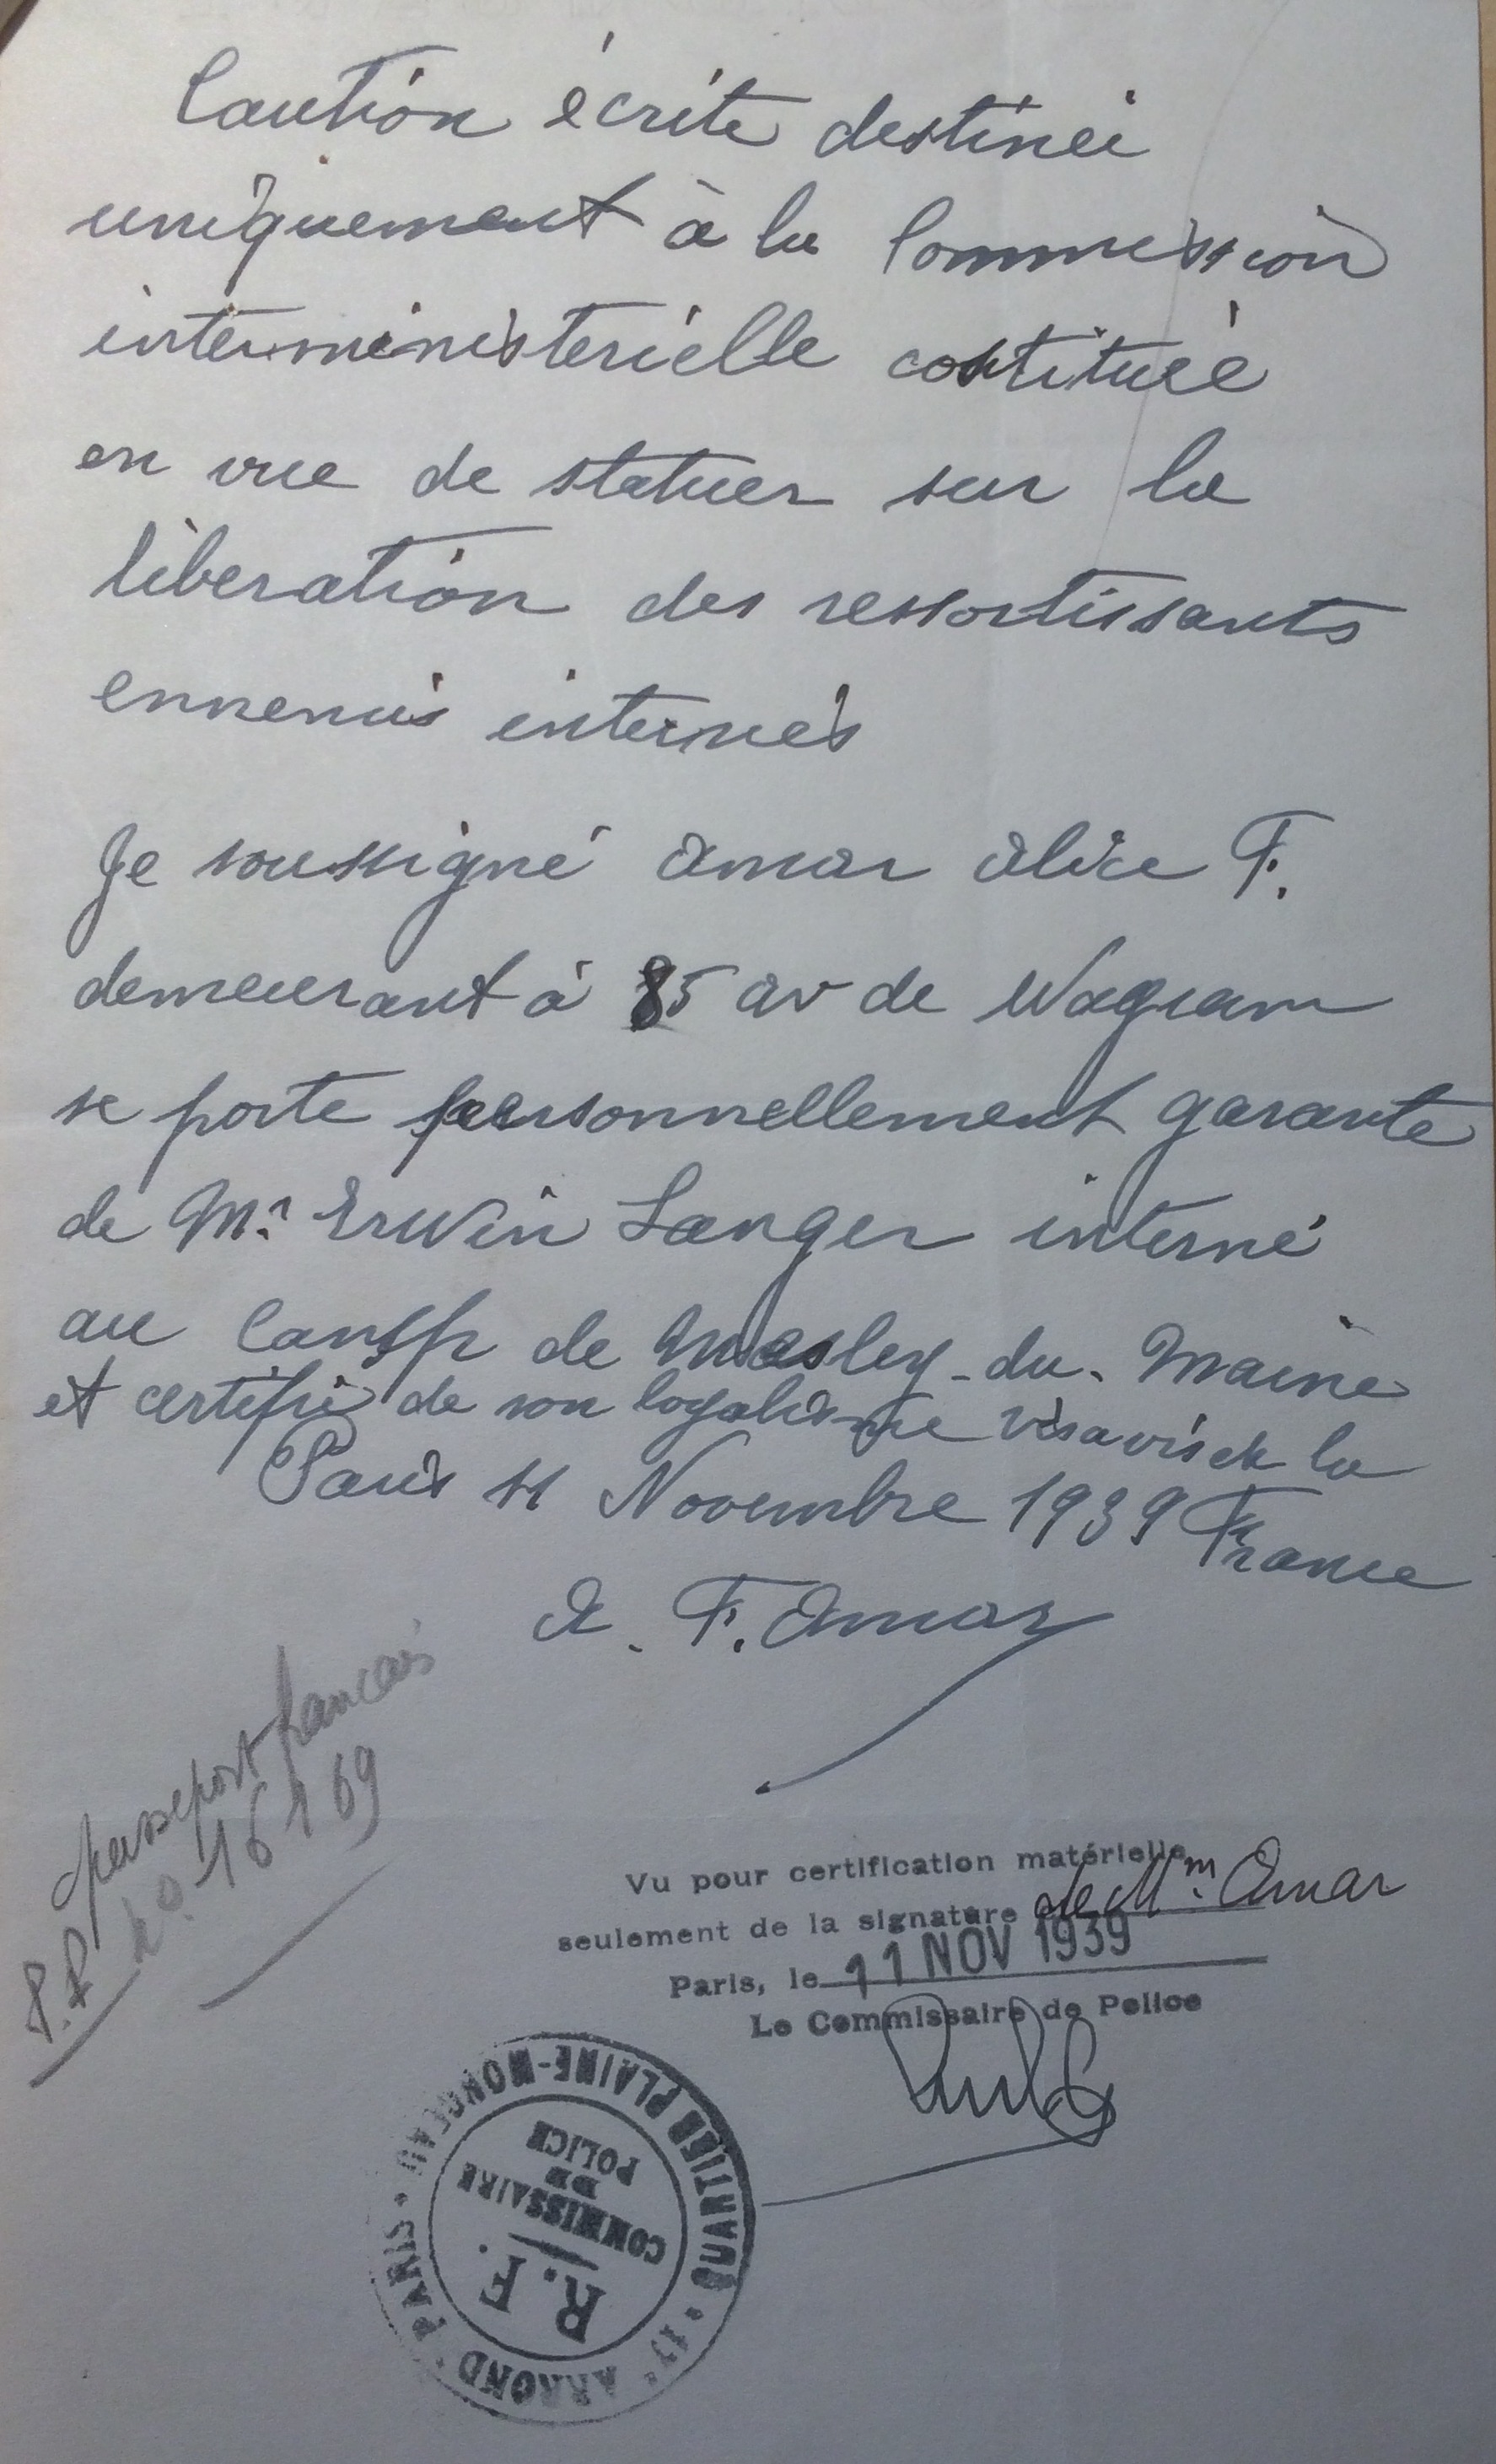 Caution écrite destinée
uniquement à la Commission
interministerielle costituée
en vue de statuer sur la
libération des ressortissants
ennemis internés
Je soussigné Amar Alice F.
demeurant à 85 av de Wagram
se porte personnellement garante
de Mr Erwin Langer interné
au Camp de Meslay-du-Maine
et certifie de son loyalisme vis a vis de la
France
Paris 11 Novembre 1939
A. F. Amar
passeport francais
no 16169
Vu pour certification matérielle
seulement de la signature de Mm. Amar
Paris, le 11 NOV 1939
Le Commissaire de Police
QUARTIER PLAINE-MONCEAU • PARIS • 17e ARROND
R. F.
COMMISSAIRE
DE
POLICE